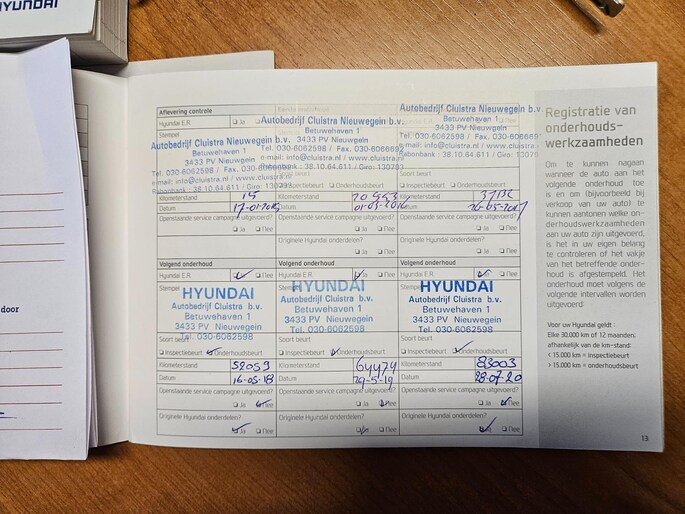 HYUNDAI
door
Aflevering controle
Hyundai E.R. ❏ Ja ❏ Nee
Stempel
Autobedrijf Cluistra Nieuwegein b.v.
Betuwehaven 1
3433 PV Nieuwegein
Tel. 030-6062598 / Fax. 030-606
e-mail: info@cluistra.nl / www.cluistra.nl
Rabonbank : 38.10.64.611 / Giro: 130793
Kilometerstand 15
Datum
Openstaande service campagne uitgevoerd?
❏ Ja ❏ Nee
Eerste onderhoud
Autobedrijf Cluistra Nieuwegein b.v.
Betuwehaven 1
3433 PV Nieuwegein
Tel. 030-6062598 / Fax. 030-606
e-mail: info@cluistra.nl / www.cluistra.nl
Rabonbank : 38.10.64.611 / Giro: 130793
Kilometerstand
Datum 01-03-2016
Openstaande service campagne uitgevoerd?
❏ Ja ❏ Nee
Originele Hyundai onderdelen?
❏ Ja ❏ Nee
Autobedrijf Cluistra Nieuwegein b.v.
Betuwehaven 1
3433 PV Nieuwegein
Tel. 030-6062598 / Fax. 030-606
e-mail: info@cluistra.nl / www.cluistra.nl
Rabonbank : 38.10.64.611 / Giro: 130793
Soort beurt
❏ Inspectiebeurt ❏ Onderhoudsbeurt
Kilometerstand
Datum
Openstaande service campagne uitgevoerd?
❏ Ja ❏ Nee
Originele Hyundai onderdelen?
❏ Ja ❏ Nee
Volgend onderhoud
Hyundai E.R. ❏ Nee
Stempel
HYUNDAI
Autobedrijf Cluistra b.v.
Betuwehaven 1
3433 PV Nieuwegein
Tel. 030-6062598
Soort beurt
❏ Inspectiebeurt ❏ Onderhoudsbeurt
Kilometerstand 52053
Datum 16-05-18
Openstaande service campagne uitgevoerd?
❏ Ja ❏ Nee
Originele Hyundai onderdelen?
❏ Ja ❏ Nee
Volgend onderhoud
Hyundai E.R. ❏ Ja ❏ Nee
Stempel
HYUNDAI
Autobedrijf Cluistra b.v.
Betuwehaven 1
3433 PV Nieuwegein
Tel. 030-6062598
Soort beurt
❏ Inspectiebeurt ❏ Onderhoudsbeurt
Kilometerstand 64474
Datum 29-5-19
Openstaande service campagne uitgevoerd?
❏ Ja ❏ Nee
Originele Hyundai onderdelen?
❏ Ja ❏ Nee
Volgend onderhoud
Hyundai E.R. ❏ Nee
Stempel
HYUNDAI
Autobedrijf Cluistra b.v.
Betuwehaven 1
3433 PV Nieuwegein
Tel. 030-6062598
Soort beurt
❏ Inspectiebeurt ❏ Onderhoudsbeurt
Kilometerstand 83003
Datum 28-07-20
Openstaande service campagne uitgevoerd?
❏ Ja ❏ Nee
Originele Hyundai onderdelen?
❏ Ja ❏ Nee
Registratie van
onderhouds-
werkzaamheden
Om te kunnen nagaan
wanneer de auto aan het
volgende onderhoud toe
is en om (bijvoorbeeld bij
verkoop van uw auto) te
kunnen aantonen welke on-
derhoudswerkzaamheden
aan uw auto zijn uitgevoerd,
is het in uw eigen belang
te controleren of het vakje
van het betreffende onder-
houd is afgestempeld. Het
onderhoud moet volgens de
volgende intervallen worden
uitgevoerd:
Voor uw Hyundai geldt :
Elke 30.000 km of 12 maanden;
afhankelijk van de km-stand:
< 15.000 km = inspectiebeurt
> 15.000 km = onderhoudsbeurt
13